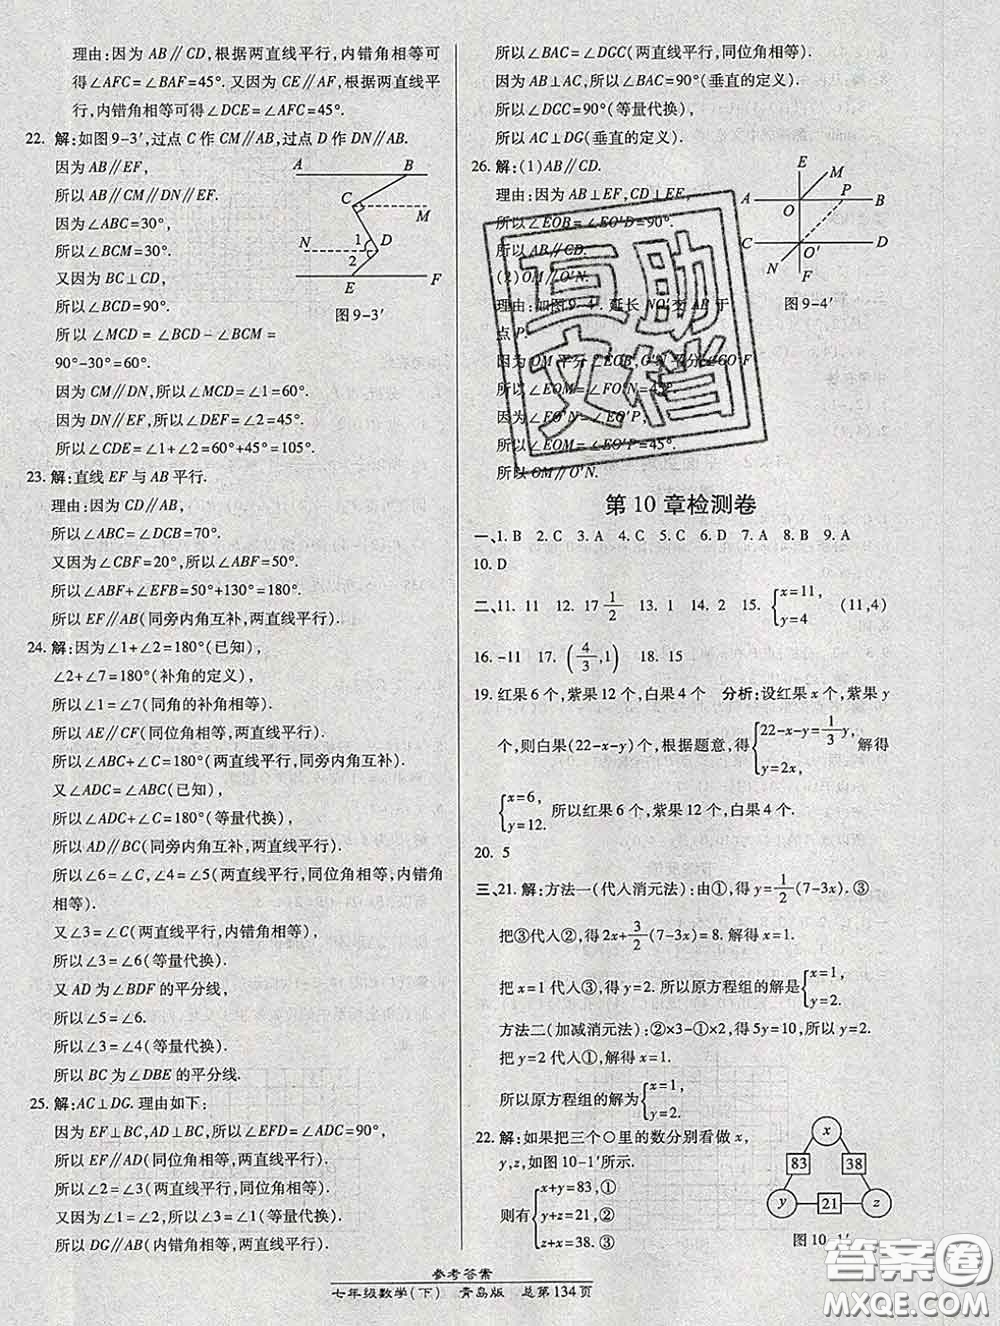 理由:因为 AB∥CD,根据两直线平行,内错角相等可
得∠AFC=∠BAF=45°. 又因为 CE∥AF,根据两直线平
行,内错角相等可得∠DCE=∠AFC=45°.
22. 解:如图 9-3′,过点 C 作 CM∥AB,过点 D 作 DN∥AB.
因为 AB∥EF,
所以 AB∥CM∥DN∥EF.
因为∠ABC=30°,
所以∠BCM=30°.
又因为 BC⊥CD,
所以∠BCD=90°.
所以∠MCD=∠BCD-∠BCM=
90°-30°=60°.
因为 CM∥DN,所以∠MCD=∠1=60°.
因为 DN∥EF,所以∠DEF=∠2=45°.
所以∠CDE=∠1+∠2=60°+45°=105°.
A B
C M
1 D
N 2
E F
图 9-3′
23. 解:直线 EF 与 AB 平行.
理由:因为 CD∥AB,
所以∠ABC=∠DCB=70°.
又因为∠CBF=20°,所以∠ABF=50°.
所以∠ABF+∠EFB=50°+130°=180°.
所以 EF∥AB(同旁内角互补,两直线平行).
24. 解:因为∠1+∠2=180°(已知),
∠2+∠7=180°(补角的定义),
所以∠1=∠7(同角的补角相等).
所以 AE∥CF(同位角相等,两直线平行).
所以∠ABC+∠C=180°(两直线平行,同旁内角互补).
又∠ADC=∠ABC(已知),
所以∠ADC+∠C=180°(等量代换),
所以 AD∥BC(同旁内角互补,两直线平行).
所以∠6=∠C,∠4=∠5(两直线平行,同位角相等,内错角
相等).
又∠3=∠C(两直线平行,内错角相等),
所以∠3=∠6(等量代换).
又 AD 为∠BDF 的平分线,
所以∠5=∠6.
所以∠3=∠4(等量代换).
所以 BC 为∠DBE 的平分线.
25. 解:AC⊥DG. 理由如下:
因为 EF⊥BC,AD⊥BC,所以∠EFD=∠ADC=90°,
所以 EF∥AD(同位角相等,两直线平行).
所以∠2=∠3(两直线平行,同位角相等).
又因为∠1=∠2,所以∠1=∠3(等量代换).
所以 DG∥AB(内错角相等,两直线平行).
所以∠BAC=∠DGC(两直线平行,同位角相等).
因为 AB⊥AC,所以∠BAC=90°(垂直的定义).
所以∠DGC=90°(等量代换),
所以 AC⊥DG(垂直的定义).
26. 解:(1)AB∥CD.
理由:因为 AB⊥EF,CD⊥EF,
所以∠EOB=∠EO′D=90°.
所以 AB∥CD.
(2)OM∥O′N.
理由:如图 9-4′,延长 NO′交 AB 于
点 P.
因为 OM 平分∠EOB,O′N 平分∠CO′F,
所以∠EOM=∠FO′N=45°.
因为∠FO′N=∠EO′P,
所以∠EOM=∠EO′P=45°.
所以 OM∥O′N.
E M
P
A O B
C O′ D
N F
图 9-4′
互助
文档
第 10 章检测卷
一、1. B 2. C 3. A 4. C 5. C 6. D 7. A 8. B 9. A
10. D
二、11. 11 12. 17 1/2 13. 1 14. 2 15. {x=11, y=4 (11,4)
16. -11 17. (4/3,1) 18. 15
19. 红果 6 个,紫果 12 个,白果 4 个 分析:设红果 x 个,紫果 y
个,则白果(22-x-y)个,根据题意,得{22-x-y=1/3 y, y=2x, 解得
{x=6, y=12. 所以红果 6 个,紫果 12 个,白果 4 个.
20. 5
三、21. 解:方法一(代人消元法):由①,得 y=1/2(7-3x). ③
把③代人②,得 2x+3/2(7-3x)=8. 解得 x=1.
把 x=1 代人③,得 y=2. 所以原方程组的解是{x=1, y=2.
方法二(加减消元法):②×3-①×2,得 5y=10,所以 y=2.
把 y=2 代人①,解得 x=1.
所以原方程组的解为{x=1, y=2.
22. 解:如果把三个○里的数分别看做 x,
y,z,如图 10-1′所示.
则有{x+y=83,①
y+z=21,②
z+x=38. ③
x
83 38
y 21 z
图 10-1′
参考答案
七年级数学(下) 青岛版 总第 134 页
答案圈
MXQE.COM